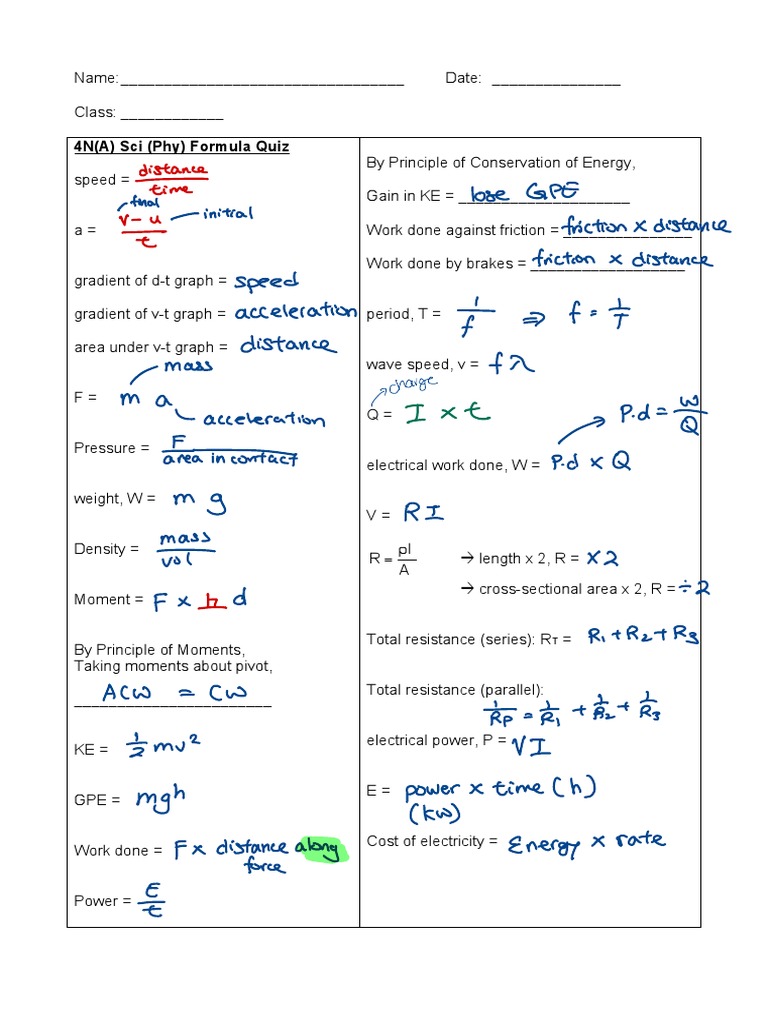 Name: _________________________________ Date: _______________
Class: ____________
4N(A) Sci (Phy) Formula Quiz
speed = distance / time
final
a = v - u / t initial
gradient of d-t graph = speed
gradient of v-t graph = acceleration
area under v-t graph = distance
mass
F = m a
acceleration
Pressure = F / area in contact
weight, W = m g
Density = mass / vol
Moment = F x h d
By Principle of Moments,
Taking moments about pivot,
ACW = CW
KE = 1/2 mv²
GPE = mgh
Work done = F x distance along
force
Power = E / t
By Principle of Conservation of Energy,
Gain in KE = lose GPE
Work done against friction = friction x distance
Work done by brakes = friction x distance
period, T = 1/f ⇒ f = 1/T
wave speed, v = f λ
charge
Q = I x t
P.d = W/Q
electrical work done, W = P.d x Q
V = R I
R = pl / A → length x 2, R = x 2
→ cross-sectional area x 2, R = ÷ 2
Total resistance (series): RT = R1 + R2 + R3
Total resistance (parallel):
1/RP = 1/R1 + 1/R2 + 1/R3
electrical power, P = V I
E = power x time (h)
(kW)
Cost of electricity = Energy x rate